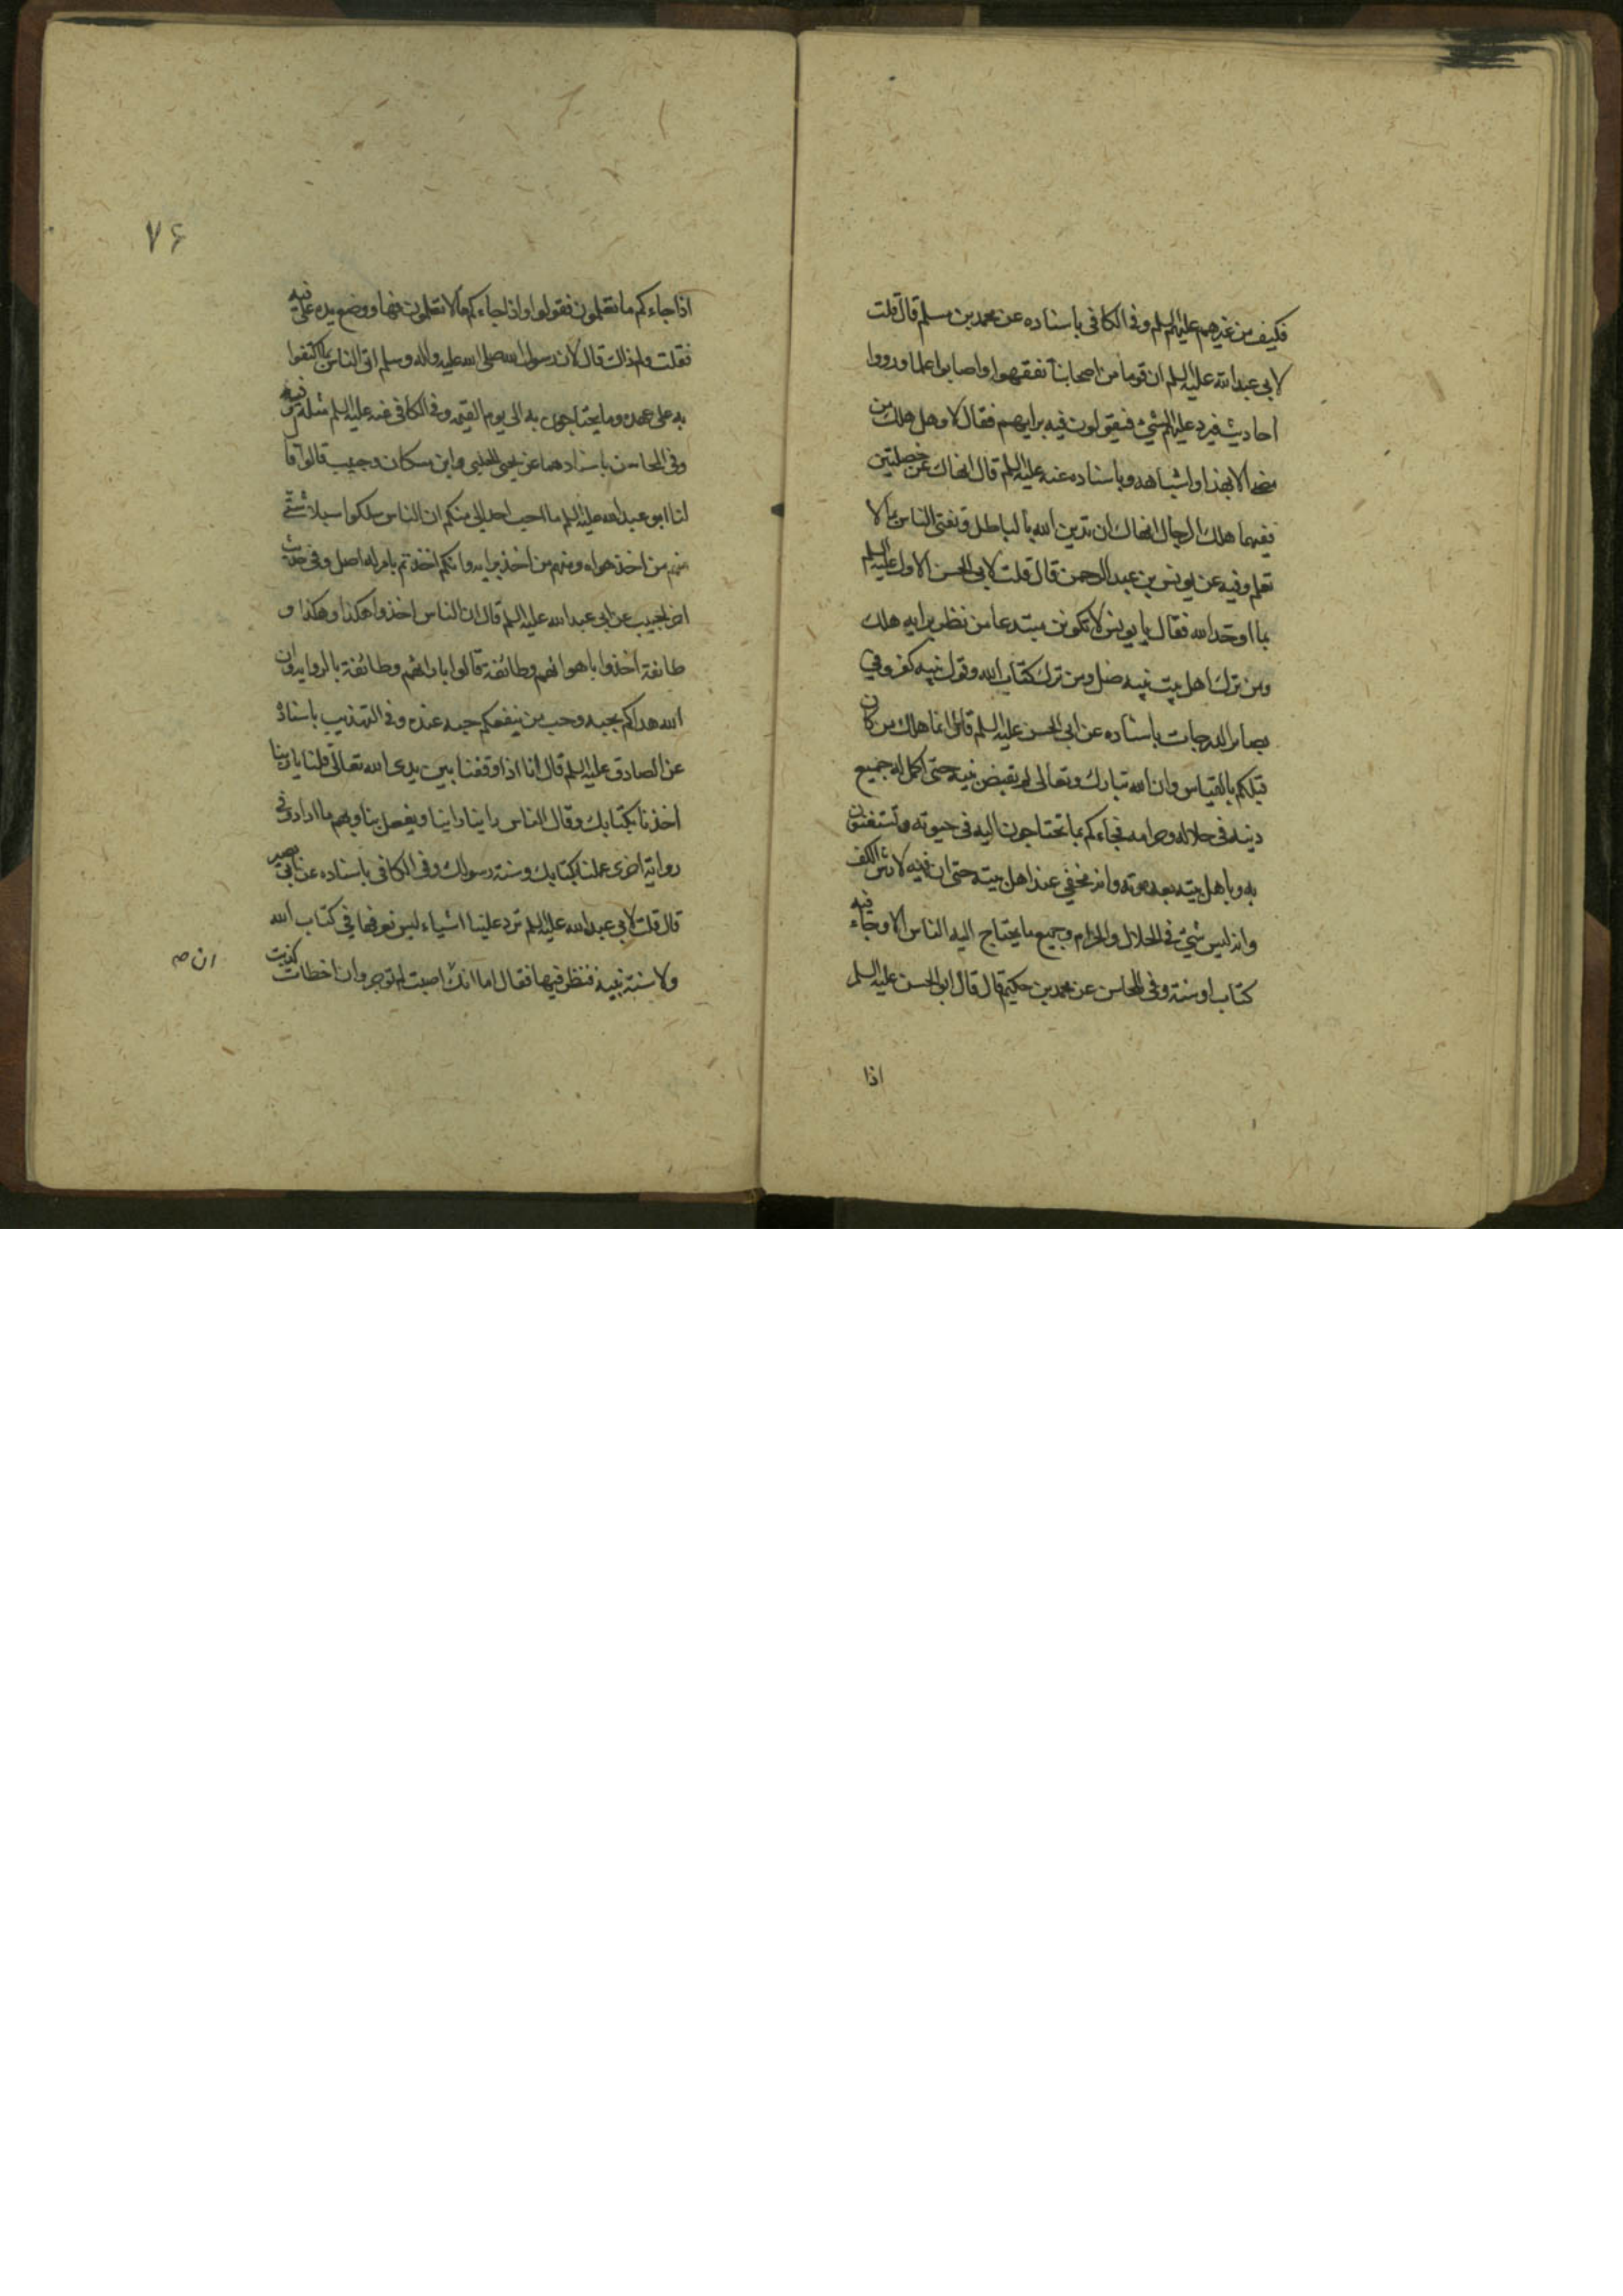 فكيف من غيرهم عليهم السلم وفى الكافى باسناده عن محمد بن مسلم قال قلت
لابى عبد الله عليه السلم ان قوما من اصحابنا تفقهوا واصابوا علما ورووا
احاديث فيرد عليهم الشئ فيقولون فيه برايهم فقال لا وهل هلك من
مضى الا بهذا واشباهه وباسناده عنه عليه السلم قال انهاك عن خصلتين
ففيهما هلك الرجال انهاك ان تدين الله بالباطل وتفتى الناس بما لا
تعلم وفيه عن يونس بن عبد الرحمن قال قلت لابى الحسن الاول عليه السلم
بما اوحد الله فقال يا يونس لا تكونن مبتدعا من نظر برايه هلك
ومن ترك اهل بيت نبيه ضل ومن ترك كتاب الله وقول نبيه كفر وفي
بصائر الدرجات باسناده عن ابى الحسن عليه السلم قال انما هلك من كان
قبلكم بالقياس وان الله تبارك وتعالى لم يقبض نبيه حتى اكمل له جميع
دينه فى حلاله وحرامه فجاءكم بما تحتاجون اليه فى حيوته وتستغنون
به وباهل بيته بعد موته وانه مخفي عند اهل بيته حتى ان فيه لارش الكف
وانه ليس شئ فى الحلال والحرام وجميع ما يحتاج اليه الناس الا وجاء فيه
كتاب او سنة وفى المحاسن عن محمد بن حكيم قال قال ابى الحسن عليه السلم
اذا
٧۶
اذا جاءكم ما تعلمون فقولوا واذا جاءكم ما لا تعلمون فها ووضع يده على فيه
فقلت ولم ذاك قال لان رسول الله صلى الله عليه واله وسلم اتى الناس بما اكتفوا
به على عهده وما يحتاجون به الى يوم القيمه وفى الكافى عنه عليه السلم مثله
وفى المحاسن باسنادهما عن يحيى الحلبى وابن مسكان وحبيب قالوا قال
لنا ابو عبد الله عليه السلم ما احب احد الى منكم ان الناس سلكوا سبلا شتى
منهم من اخذ هواه ومنهم من اخذ برايه وانكم اخذتم بامر له اصل وفى حديث
اخر لحبيب عن ابى عبد الله عليه السلم قال ان الناس اخذوا هكذا وهكذا و
طائفة اخذوا باهوائهم وطائفة قالوا بارائهم وطائفة بالرواية وان
الله هداكم بحبه وحب من ينفعكم حبه عنده وفى التهذيب باسناده
عن الصادق عليه السلم قال انا اذا وقفنا بين يدى الله تعالى قلنا يا ربنا
اخذنا بكتابك وقال الناس راينا راينا ويفعل بنا وبهم ما اراد وفي
رواية اخرى عملنا بكتابك وسنة رسولك وفى الكافى باسناده عن ابى بصير
قال قلت لابى عبد الله عليه السلم ترد علينا اشياء ليس نعرفها في كتاب الله
ولا سنة نبيه فننظر فيها فقال اما انك اصبت لم توجر وان اخطات كذبت
ان صه